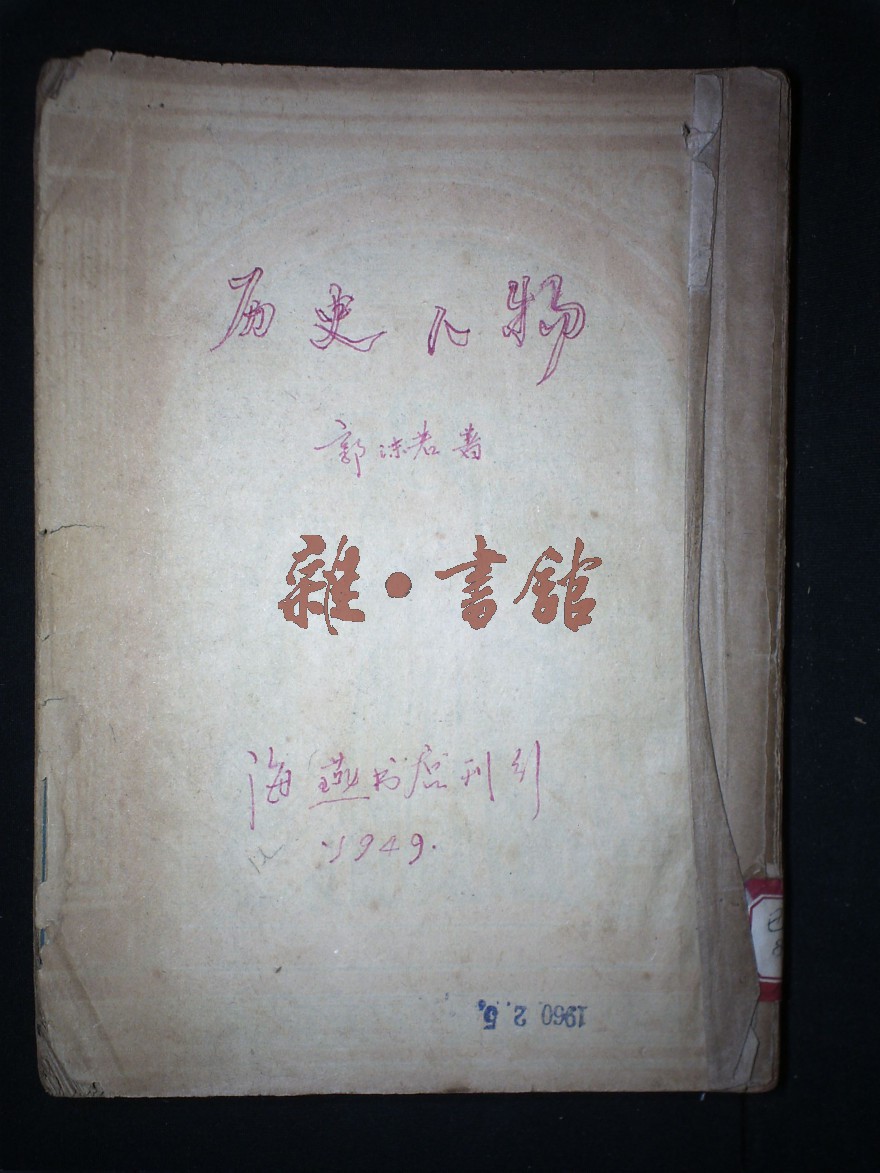 历史人物
郭沫若著
雜·書舘
海燕书店刊行
1949.
1960.2.5,